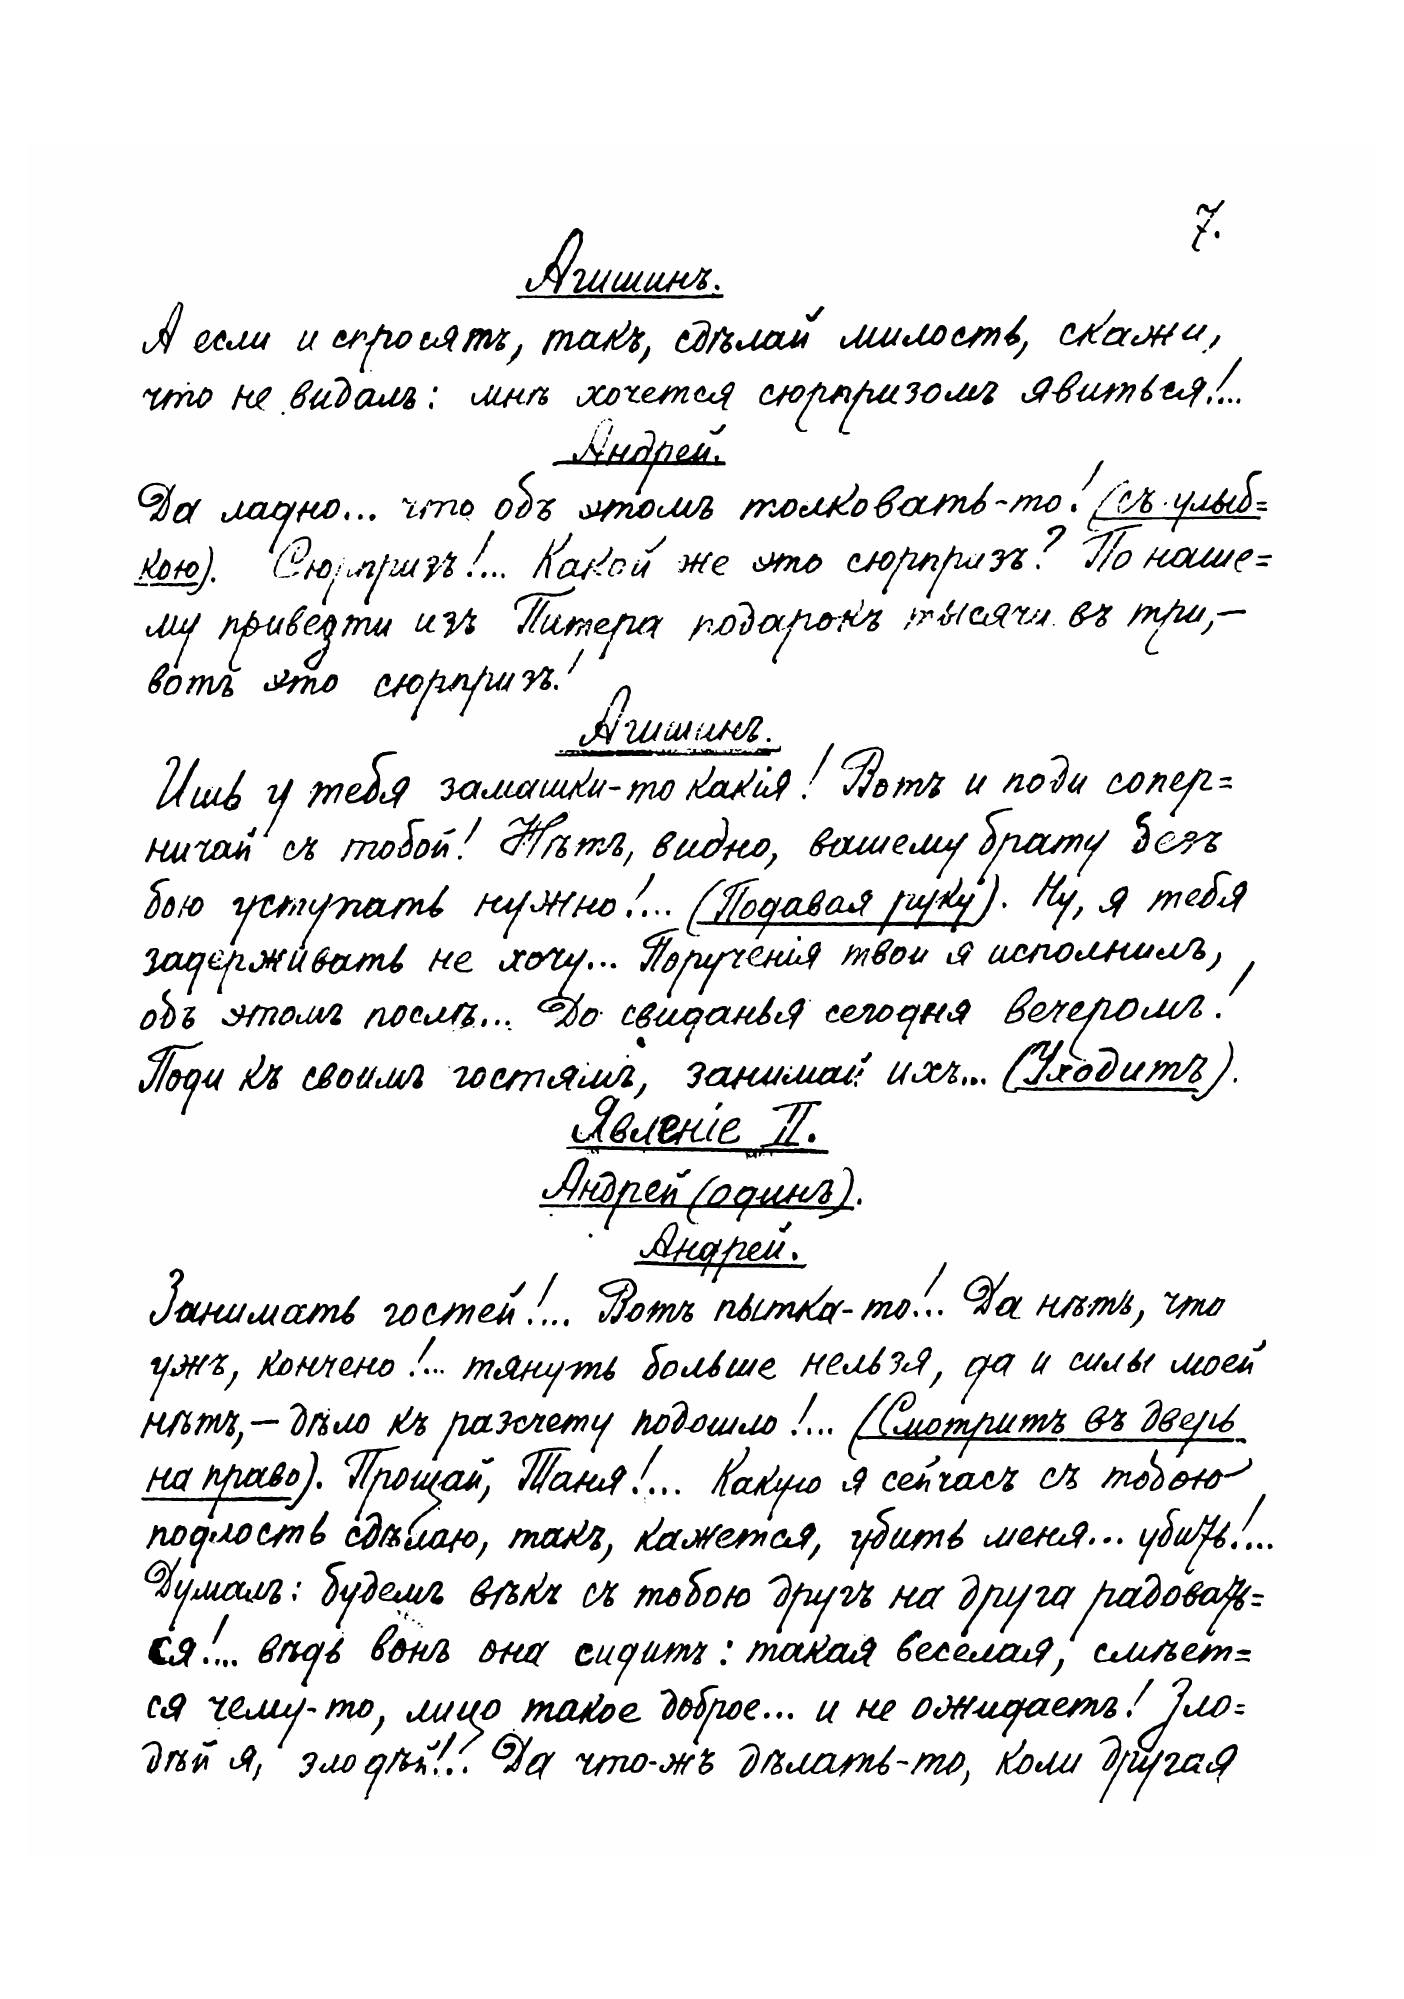 7.
Агишинъ.
А если и спросятъ, такъ, сдѣлай милость, скажи,
что не видалъ: мнѣ хочется сюрпризомъ явиться!...
Андрей.
Да ладно... что объ этомъ толковать-то! (съ улыб=
кою). Сюрпризъ!... Какой же это сюрпризъ? По наше=
му привезти изъ Питера подарокъ тысячи въ три,—
вотъ это сюрпризъ!
Агишинъ.
Ишь у тебя замашки-то какія! Вотъ и поди сопер=
ничай съ тобой! Нѣтъ, видно, вашему брату безъ
бою уступать нужно!... (Подавая руку). Ну, я тебя
задерживать не хочу... Порученія твои я исполнилъ,
объ этомъ послѣ... До свиданья сегодня вечеромъ!
Поди къ своимъ гостямъ, занимай ихъ... (Уходитъ).
Явленіе II.
Андрей (одинъ).
Андрей.
Занимать гостей!... Вотъ пытка-то!... Да нѣтъ, что
ужъ, кончено!... тянуть больше нельзя, да и силы моей
нѣтъ,— дѣло къ разсчету подошло!... (Смотритъ въ дверь
на право). Прощай, Таня!... Какую я сейчасъ съ тобою
подлость сдѣлаю, такъ, кажется, убить меня... убить!...
Думалъ: будемъ вѣкъ съ тобою другъ на друга радовать=
ся!... вѣдь вонъ она сидитъ: такая веселая, смѣет=
ся чему-то, лицо такое доброе... и не ожидаетъ! Зло=
дѣй я, злодѣй!.. Да что-жъ дѣлать-то, коли другая